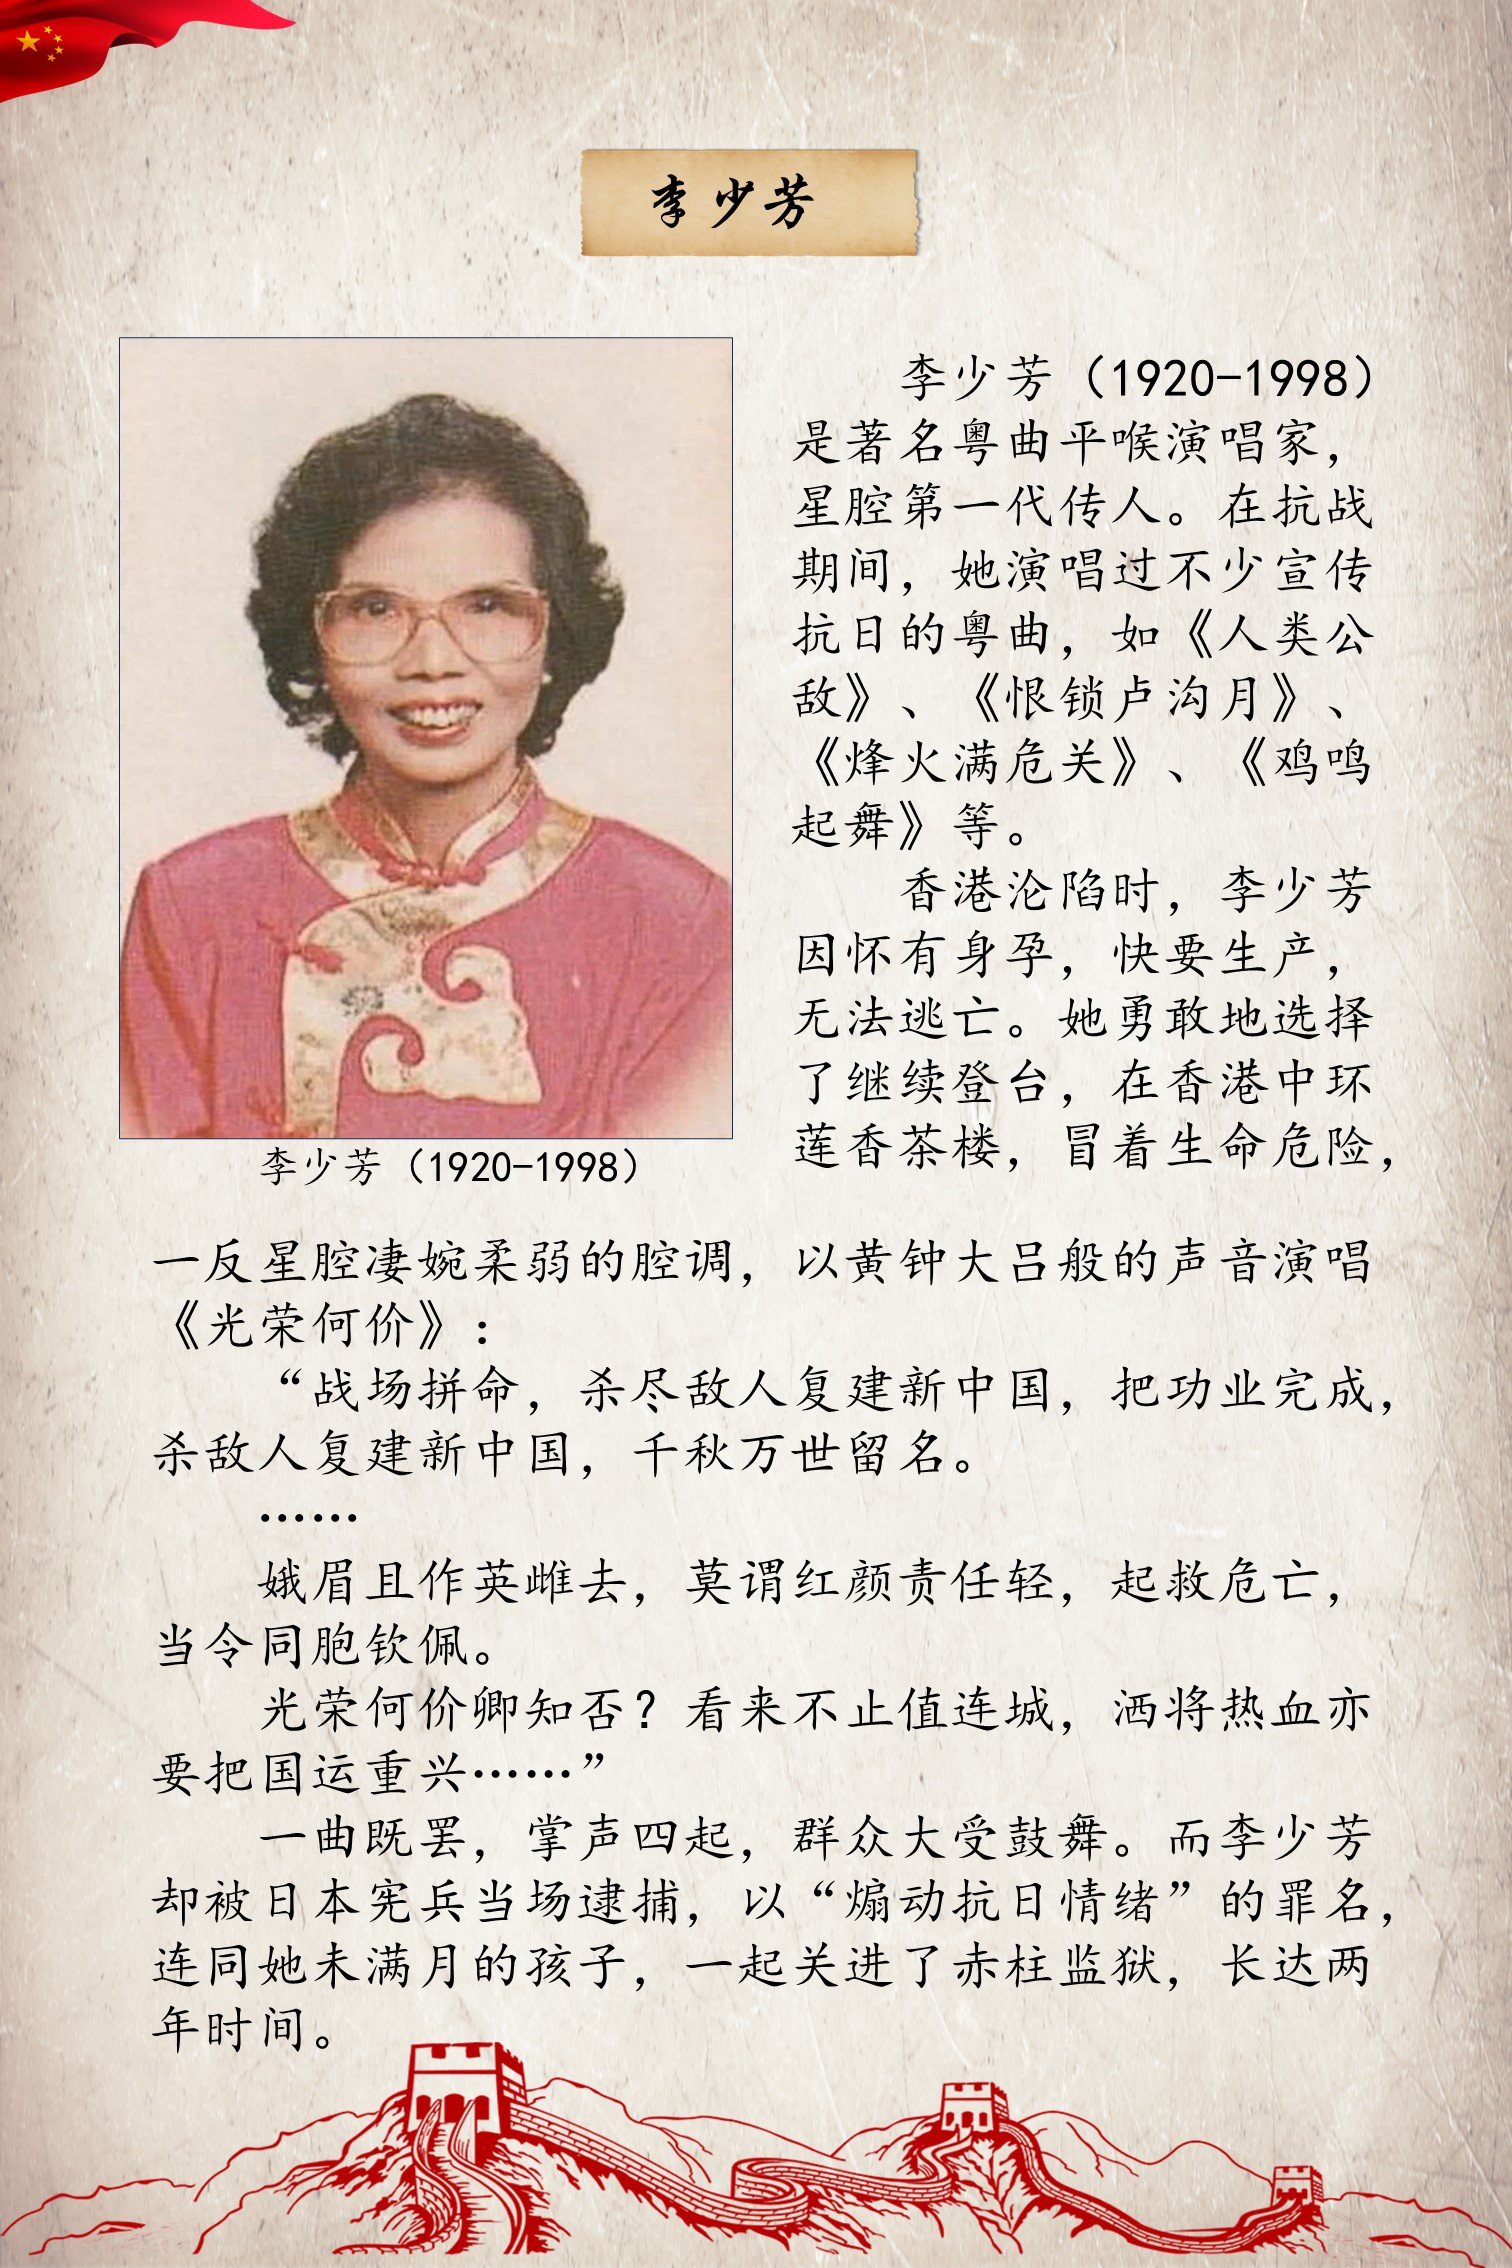 李少芳
李少芳（1920-1998）
是著名粤曲平喉演唱家，
星腔第一代传人。在抗战
期间，她演唱过不少宣传
抗日的粤曲，如《人类公
敌》、《恨锁卢沟月》、
《烽火满危关》、《鸡鸣
起舞》等。
香港沦陷时，李少芳
因怀有身孕，快要生产，
无法逃亡。她勇敢地选择
了继续登台，在香港中环
莲香茶楼，冒着生命危险，
李少芳（1920-1998）
一反星腔凄婉柔弱的腔调，以黄钟大吕般的声音演唱
《光荣何价》：
“战场拼命，杀尽敌人复建新中国，把功业完成，
杀敌人复建新中国，千秋万世留名。
……
娥眉且作英雌去，莫谓红颜责任轻，起救危亡，
当令同胞钦佩。
光荣何价卿知否？看来不止值连城，洒将热血亦
要把国运重兴……”
一曲既罢，掌声四起，群众大受鼓舞。而李少芳
却被日本宪兵当场逮捕，以“煽动抗日情绪”的罪名，
连同她未满月的孩子，一起关进了赤柱监狱，长达两
年时间。